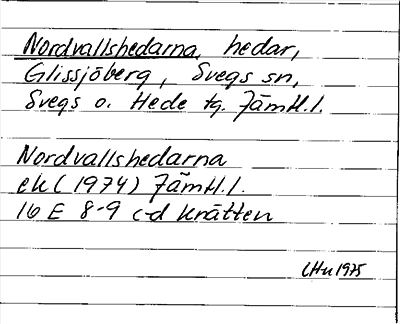 Nordvallshedarna, hedar,
Glissjöberg, Svegs sn,
Svegs o. Hede tg. Jämtl. l.
Nordvallshedarna
ek (1974) Jämtl. l.
16 E 8-9 c-d Kratten
LHu 1975